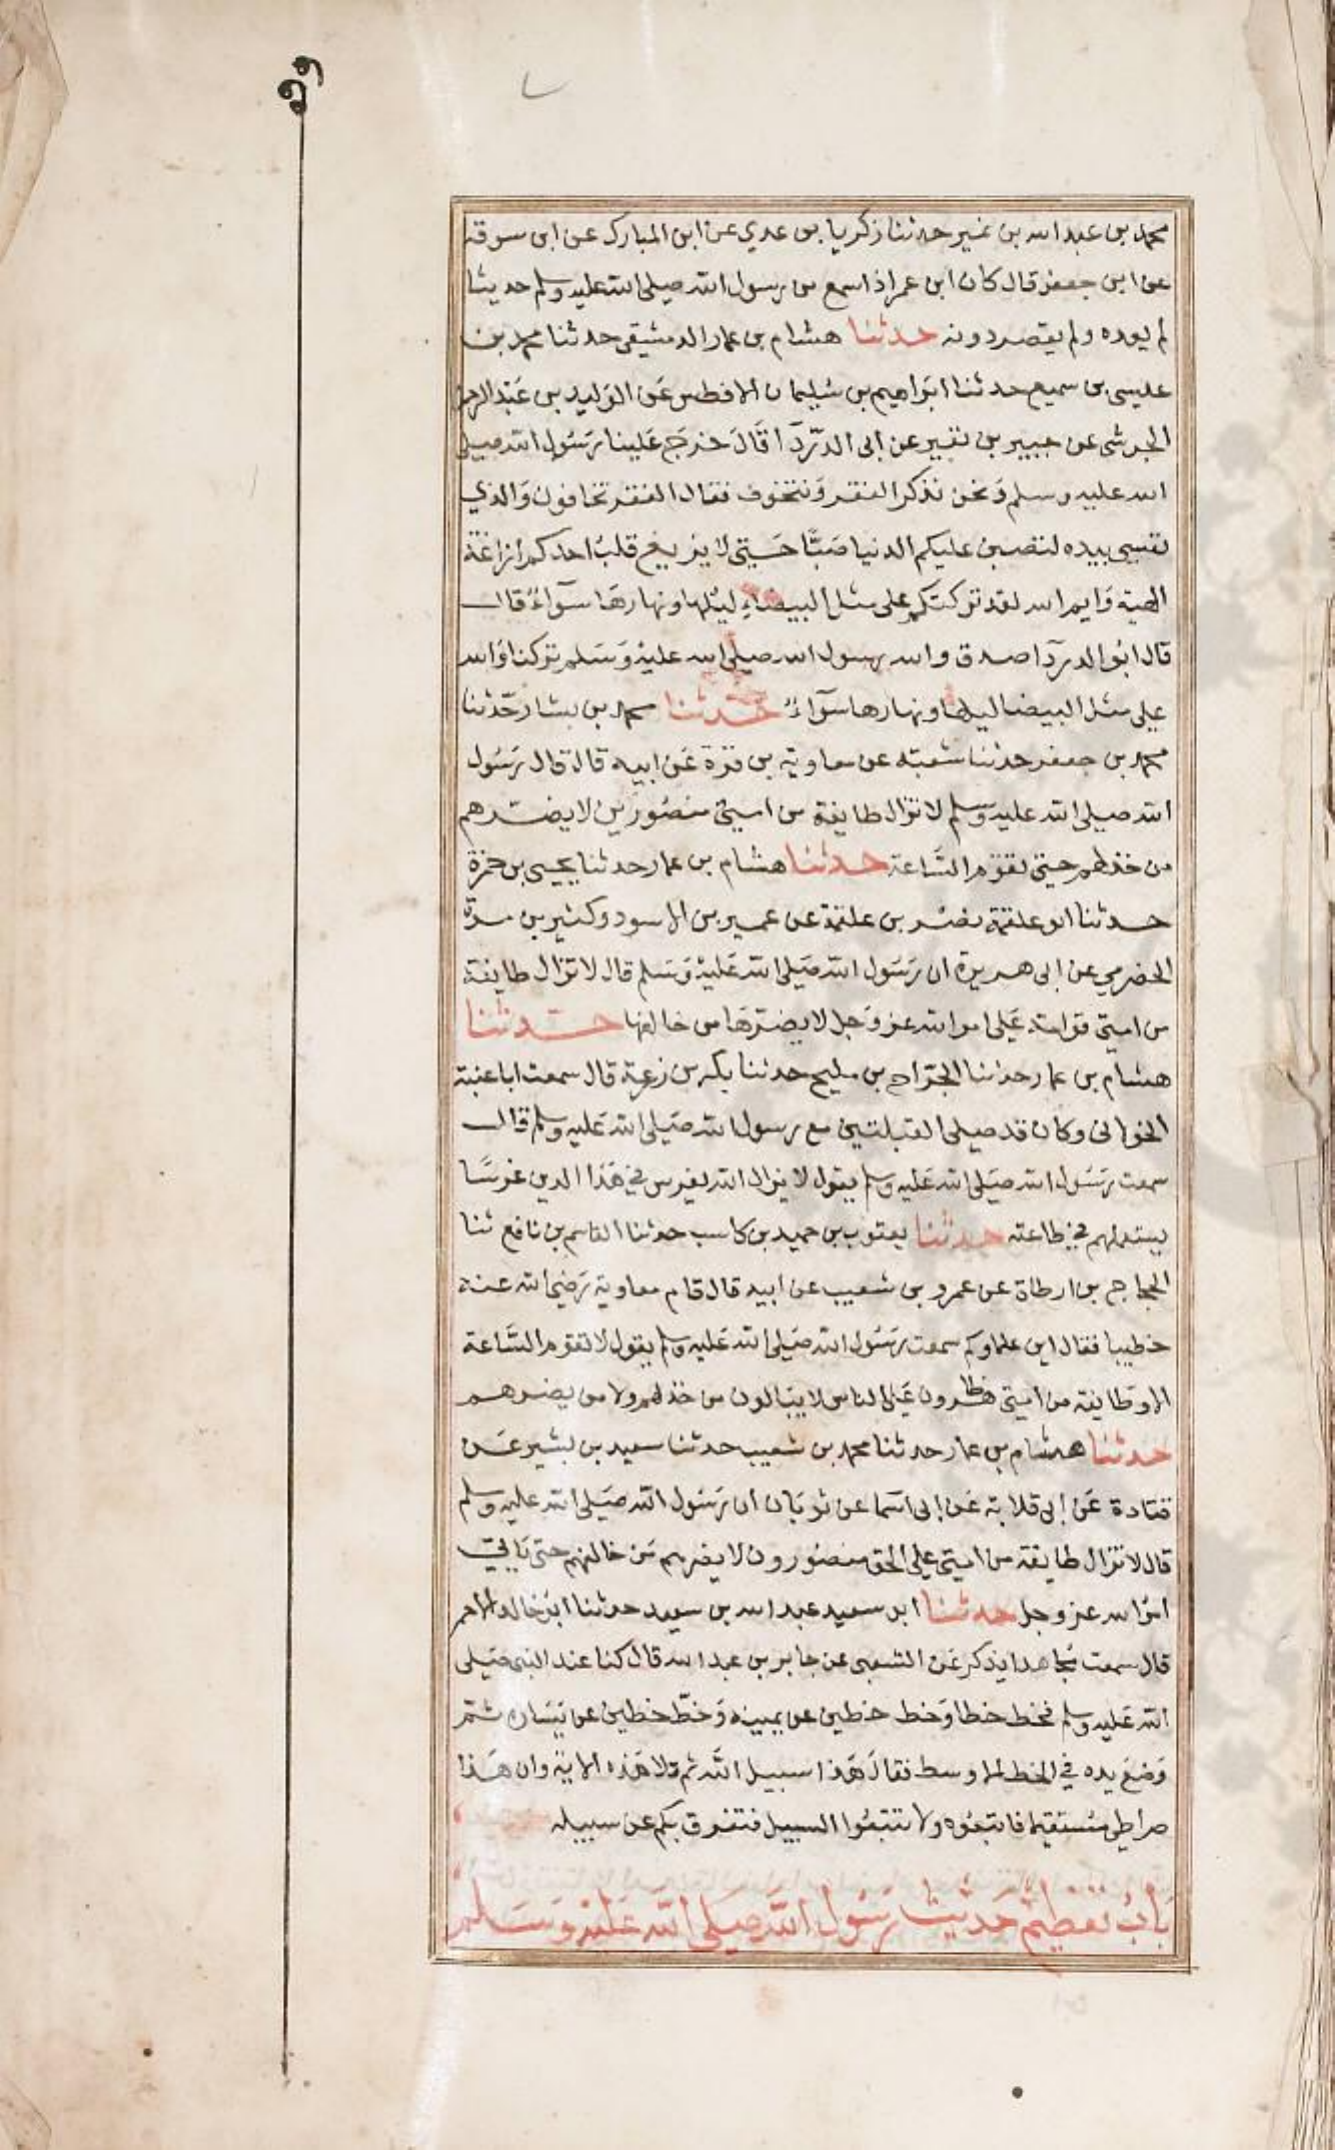 محمد بن عبد الله بن نمير حدثنا زكريا بن عدي عن ابن المبارك عن ابن سوقة
عن ابي جعفر قال كان ابن عمر اذا سمع من رسول الله صلى الله عليه وسلم حديثا
لم يعده ولم يقصر دونه حدثنا هشام بن عمار الدمشقي حدثنا محمد بن
عيسى بن سميع حدثنا ابراهيم بن سليمان الافطس عن الوليد بن عبد الرحمن
الجرشي عن جبير بن نفير عن ابى الدردآ قال خرج علينا رسول الله صلى
الله عليه وسلم ونحن نذكر الفقر ونتخوف فقال الفقر تخافون والذي
نفسي بيده لتصبن عليكم الدنيا صبًّا حتى لا يزيغ قلب احدكم ازاغة
الاهية وايم الله لقد تركتكم على مثل البيضاء ليلها ونهارها سوآء قال
قال ابو الدردآ صدق والله رسول الله صلى الله عليه وسلم تركنا والله
على مثل البيضا ليلها ونهارها سوآء حدثنا محمد بن بشار حدثنا
محمد بن جعفر حدثنا شعبة عن معاوية بن قرة عن ابيه قال قال رسول
الله صلى الله عليه وسلم لا تزال طايفة من امتي منصورين لا يضرهم
من خذلهم حتى تقوم الساعة حدثنا هشام بن عمار حدثنا يحيى بن حمزة
حدثنا ابو علقمة نصر بن علقمة عن عمير بن الاسود وكثير بن مرة
الحضرمي عن ابى هريرة ان رسول الله صلى الله عليه وسلم قال لا تزال طايفة
من امتي قوامة على امر الله عز وجل لا يضرها من خالفها حدثنا
هشام بن عمار حدثنا الجراح بن مليح حدثنا بكر بن زرعة قال سمعت ابا عنبة
الخولانى وكان قد صلى القبلتين مع رسول الله صلى الله عليه وسلم قال
سمعت رسول الله صلى الله عليه وسلم يقول لا يزال الله يغرس في هذا الدين غرسًا
يستعملهم في طاعته حدثنا يعقوب بن حميد بن كاسب حدثنا القاسم بن نافع ثنا
الحجاج بن ارطاة عن عمرو بن شعيب عن ابيه قال قام معاوية رضي الله عنه
خطيبا فقال اين علماوكم سمعت رسول الله صلى الله عليه وسلم يقول لا تقوم الساعة
الا وطايفة من امتي ظاهرون على الناس لا يبالون من خذلهم ولا من يضرهم
حدثنا هشام بن عمار حدثنا محمد بن شعيب حدثنا سعيد بن بشير عن
قتادة عن ابى قلابة عن ابى اسما عن ثوبان ان رسول الله صلى الله عليه وسلم
قال لا تزال طايفة من امتي على الحق منصورون لا يضرهم من خالفهم حتى ياتي
امر الله عز وجل حدثنا ابو سعيد عبد الله بن سعيد حدثنا ابو خالد الاحمر
قال سمعت مجاهدا يذكر عن الشعبى عن جابر بن عبد الله قال كنا عند النبي صلى
الله عليه وسلم فخط خطا وخط خطين عن يمينه وخط خطين عن يساره ثم
وضع يده في الخط الاوسط فقال هذا سبيل الله ثم تلا هذه الاية وان هذا
صراطي مستقيما فاتبعوه ولا تتبعوا السبيل فتفرق بكم عن سبيله
باب تعظيم حديث رسول الله صلى الله عليه وسلم